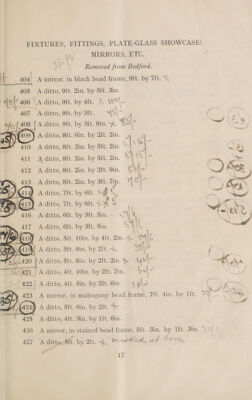 FIXTURES, FITTINGS, PLATE-GLASS SHOWCASE:
MIRRORS, ETC.
Removed from Bedford.
404 A mirror, in black bead frame, 9ft. by 7ft.
405 A ditto, 9ft. 2in. by 8ft. 3in.
406 A ditto, 9ft. by 4ft.
407 A ditto, 9ft. by 3ft.
408 A ditto, 9ft. by 3ft. 9in. 85/-
409 A ditto, 8ft. 6in. by 2ft. 2in.
410 A ditto, 8ft. 2in. by 5ft. 2in.
411 A ditto, 8ft. 2in. by 5ft. 2in.
412 A ditto, 8ft. 2in. by 2ft. 9in. 50/-
413 A ditto, 8ft. 2in. by 3ft. 7in. 70/-
414 A ditto, 7ft. by 6ft.
415 A ditto, 7ft. by 6ft.
416 A ditto, 6ft. by 3ft. 5in.
417 A ditto, 6ft. by 3ft.
418 A ditto, 5ft. 10in. by 4ft. 2in.
419 A ditto, 5ft. 9in. by 2ft.
420 A ditto, 5ft. 8in. by 2ft. 2in.
421 A ditto, 4ft. 10in. by 2ft. 7in.
422 A ditto, 4ft. 5in. by 2ft. 6in.
423 A mirror, in mahogany bead frame, 7ft. 4in. by 1ft.
424 A ditto, 5ft. 6in. by 2ft.
425 A ditto, 4ft. 3in. by 1ft. 6in.
426 A mirror, in stained bead frame, 5ft. 3in. by 1ft. 3in.
427 A ditto, 5ft. by 2ft. marked at base
17